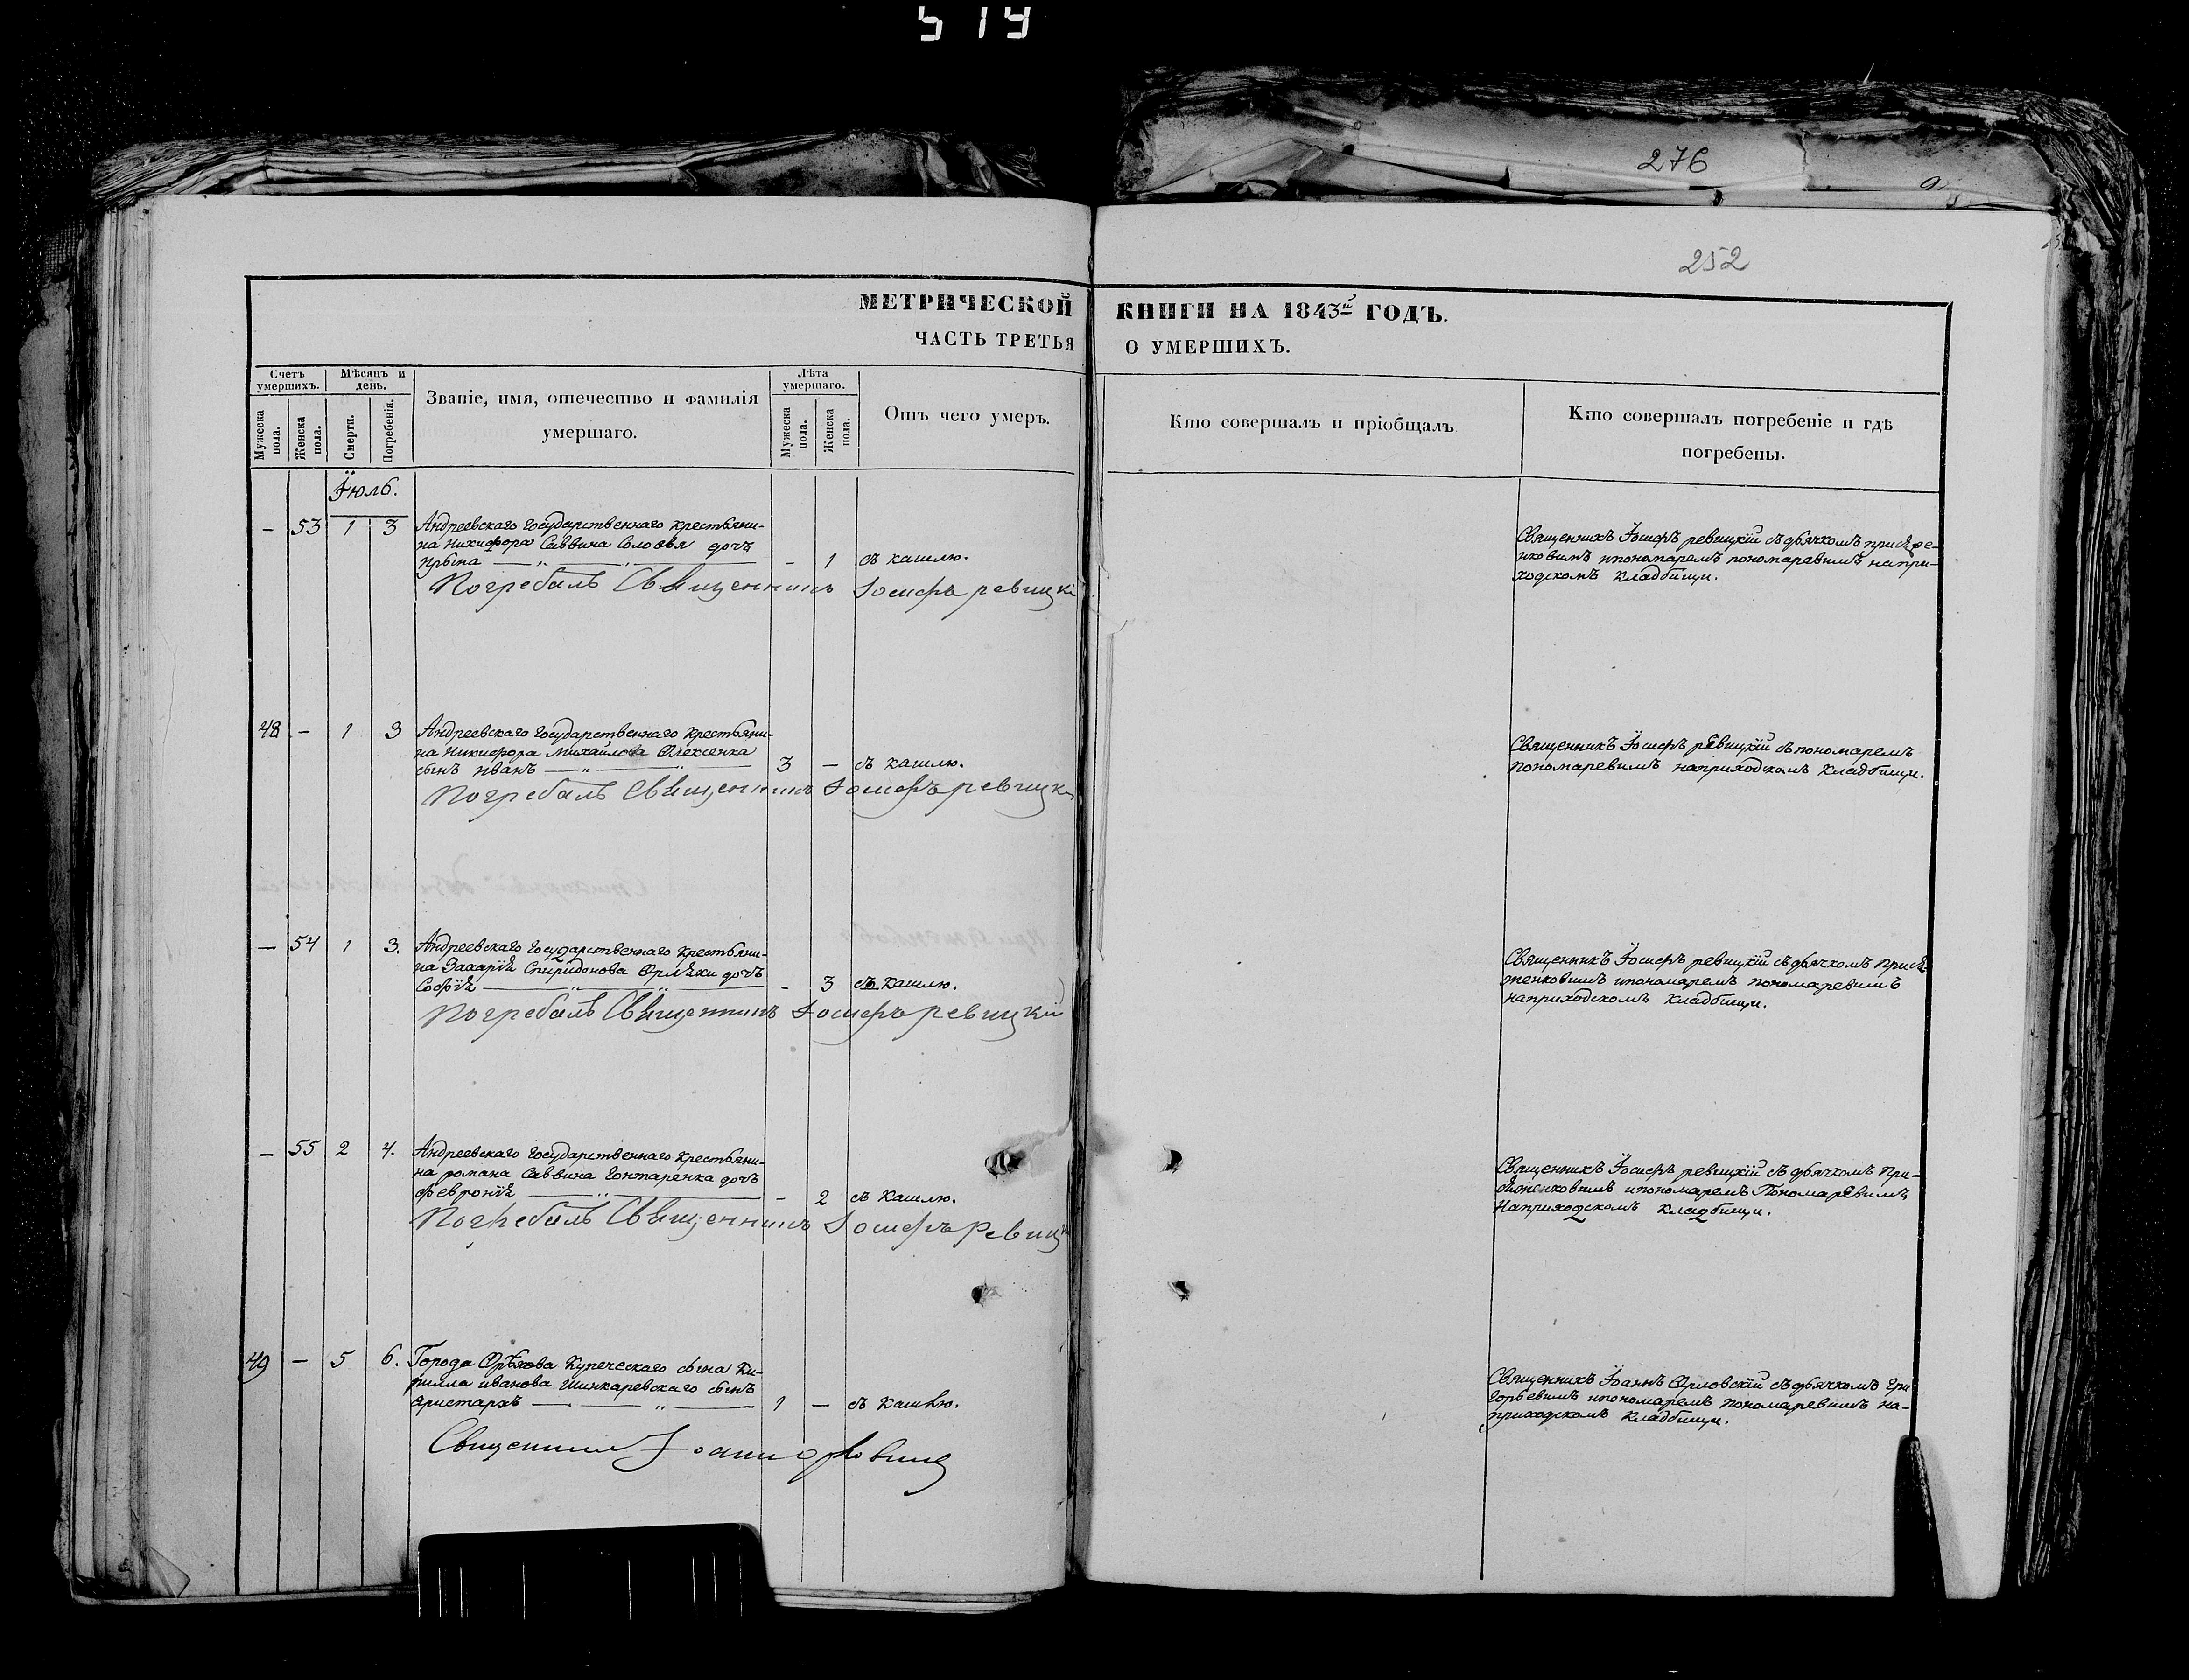 519
276
252
МЕТРИЧЕСКОЙ КНИГИ НА 1843й ГОДЪ.
ЧАСТЬ ТРЕТЬЯ О УМЕРШИХЪ.
Счетъ умершихъ.
Мѣсяцъ и день.
Званіе, имя, отечество и фамилія умершаго.
Лѣта умершаго.
Отъ чего умеръ.
Кто совершалъ и пріобщалъ
Кто совершалъ погребеніе и гдѣ погребены.
Мужеска пола.
Женска пола.
Смерти.
Погребенія.
Мужеска пола.
Женска пола.
Іюль.
– 53 1 3 Андреевскаго государственнаго крестьяни-
на Никифора Саввина Соловья дочь
Ирына – 1 съ кашлю.
Погребалъ Священникъ Іосифъ ревицкі
Священникъ Іосифъ ревицкій съ дьячкомъ
ипономаремъ пономаревимъ напри-
ходскомъ кладбищи.
48 – 1 3 Андреевскаго государственнаго крестьяни-
на Никифора Михайлова Олексенка
сынъ иванъ 3 – съ кашлю.
Погребалъ Священникъ Іосифъ ревицкі
Священникъ Іосифъ ревицкій съ пономаремъ
пономаревимъ наприходскомъ кладбищи.
– 54 1 3. Андреевскаго государственнаго крестьяни-
на Захарія Спиридонова дочь
Софія – 3 съ кашлю.
Погребалъ Священникъ Іосифъ ревицкій
Священникъ Іосифъ ревицкій съ дьячкомъ
ипономаремъ пономаревимъ
наприходскомъ кладбищи.
– 55 2 4. Андреевскаго государственнаго крестьяни-
на романа Саввина Гонтаренка дочь
Февронія – 2 съ кашлю.
Погребалъ Священникъ Іосифъ Ревиц
Священникъ Іосифъ ревицкій съ дьячкомъ При-
ипономаремъ Пономаревимъ
Наприходскомъ кладбищи.
49 – 5 6. Города Орѣхова купеческаго сына Ки-
рилла иванова Шинкаревскаго сынъ
Аристархъ 1 – съ кашлю.
Священник Іоанн
Священникъ Іоаннъ Орловскій съ дьячкомъ гри
горьевимъ ипономаремъ пономаревимъ на-
приходскомъ кладбищи.